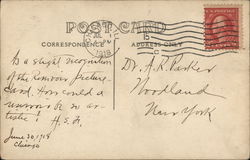 POST CARD
CORRESPONDENCE
ADDRESS ONLY
As a slight recognition
of the Renwar picture-
card. How could a
mirror be so ar-
tistic! H.S.F.
June 30, 1918
Chicago
Dr. A. R. Parker
Woodland
New York